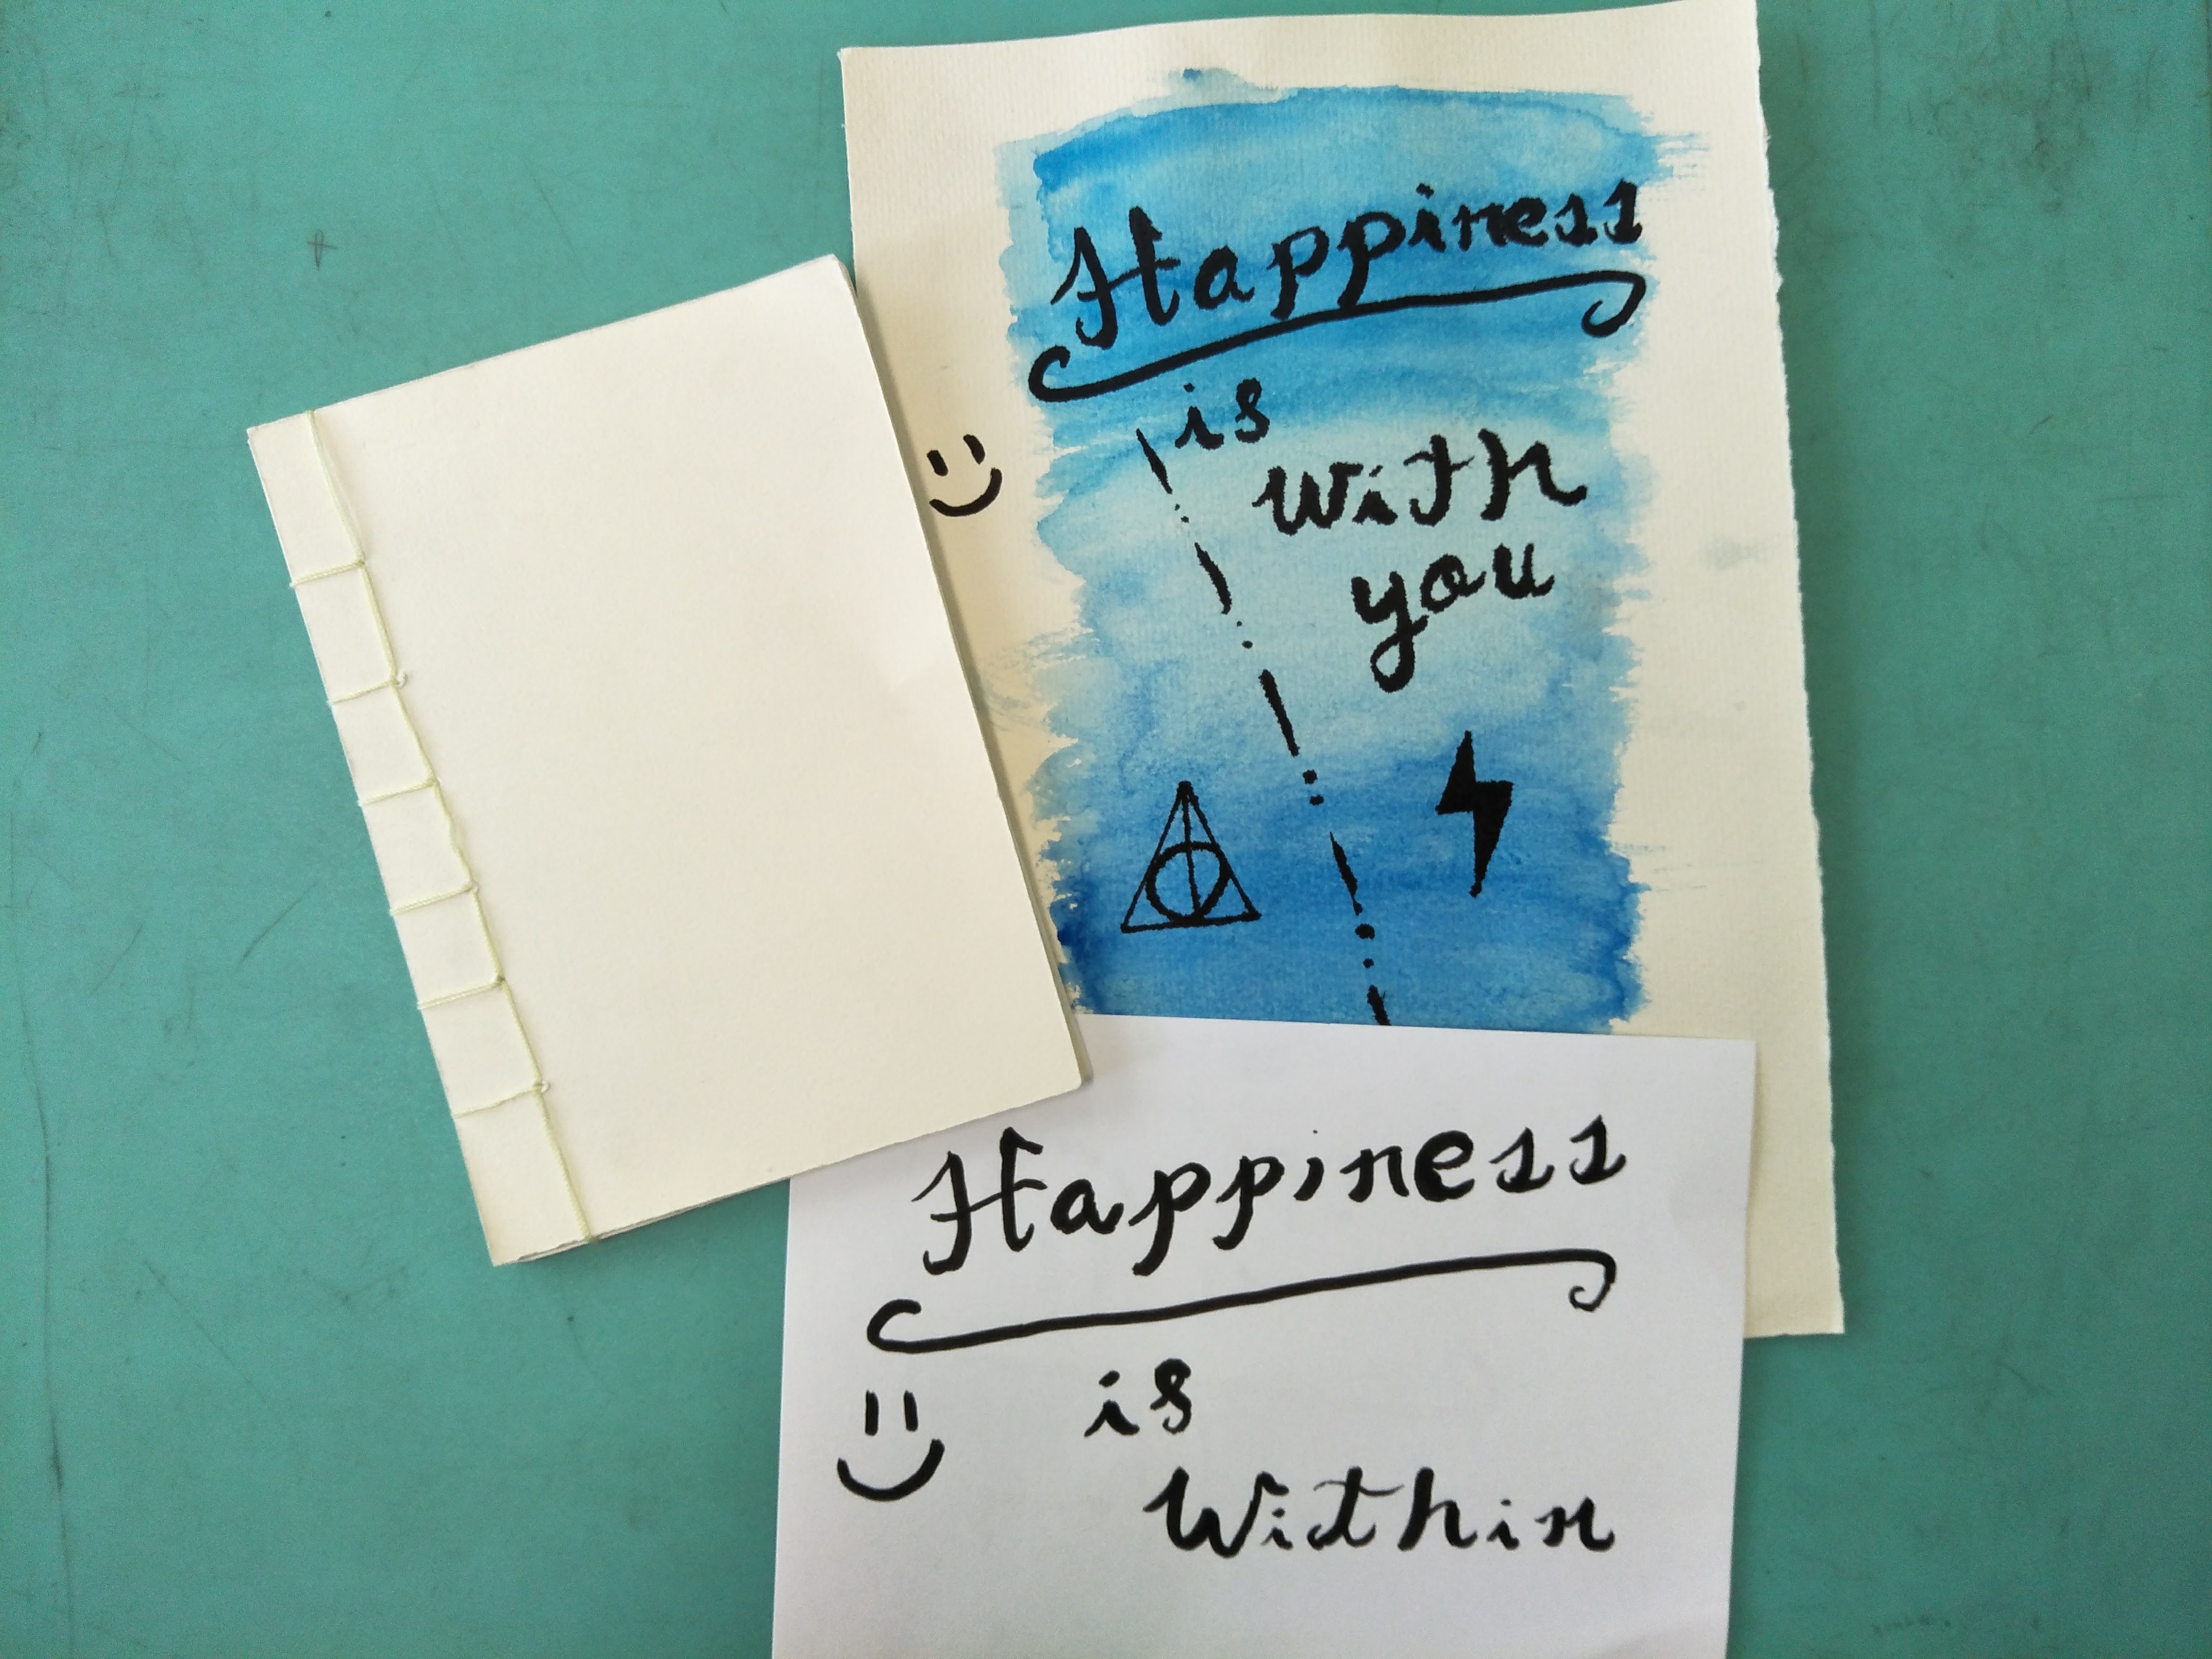 Happiness
is
with
you
Happiness
is
Within